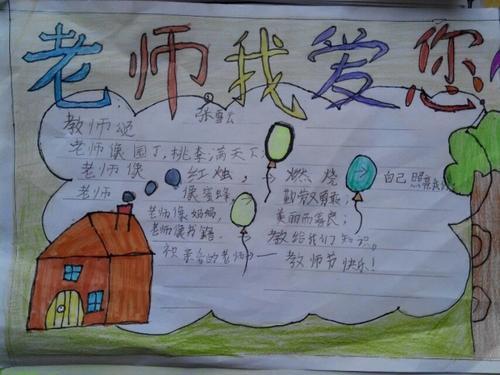 老师我爱您
教师颂
老师像园丁,桃李满天下,
老师像红烛,燃烧自己照亮我们,
老师像蜜蜂,勤劳勇敢,
老师像妈妈,美丽而善良;
老师像书籍,教给我们知识。
祝亲爱的老师——教师节快乐!